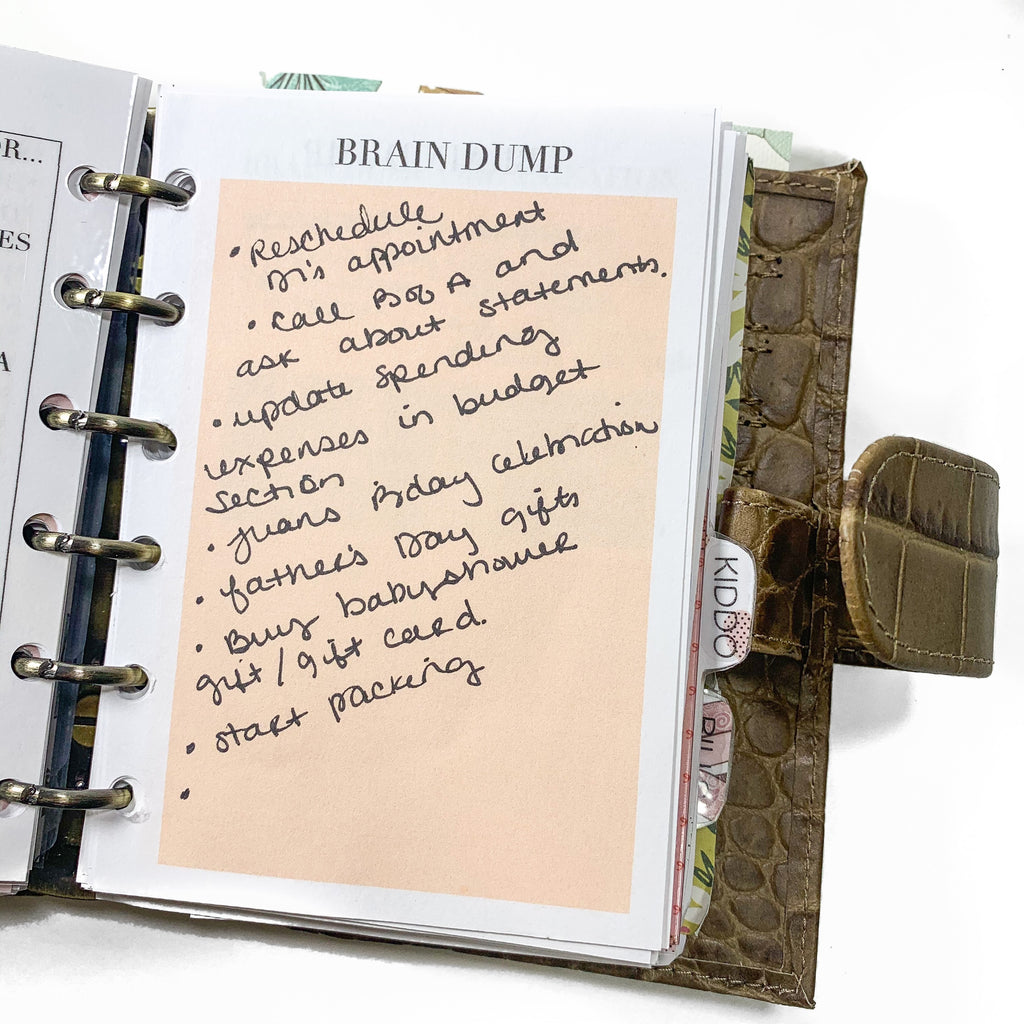 OR...
ES
A
BRAIN DUMP
• Reschedule
M's appointment
• call BofA and
ask about statements.
• update spending
expenses in budget
section
• Juans Bday celebration
• father's Day gifts
• Buy babyshower
gift / gift card.
• start packing
•
KIDDO